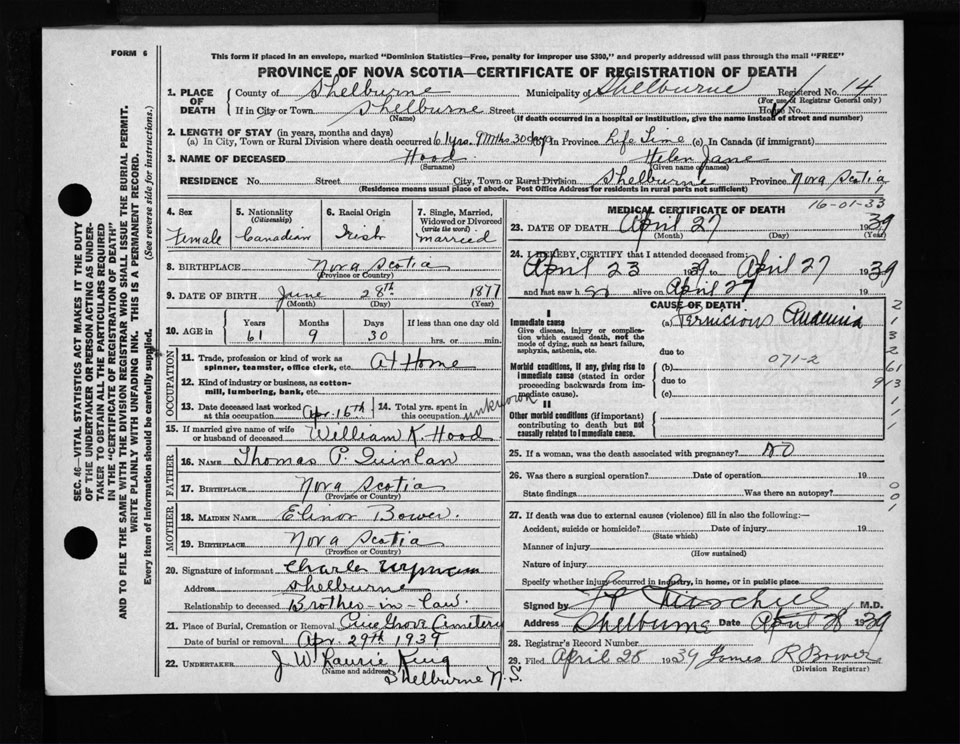 FORM 6
This form if placed in an envelope, marked "Dominion Statistics—Free, penalty for improper use $300," and properly addressed will pass through the mail "FREE"
PROVINCE OF NOVA SCOTIA—CERTIFICATE OF REGISTRATION OF DEATH
SEC. 46—VITAL STATISTICS ACT MAKES IT THE DUTY
OF THE UNDERTAKER OR PERSON ACTING AS UNDER-
TAKER TO OBTAIN ALL THE PARTICULARS REQUIRED
IN THE "CERTIFICATE OF REGISTRATION OF DEATH"
AND TO FILE THE SAME WITH THE DIVISION REGISTRAR WHO SHALL ISSUE THE BURIAL PERMIT.
WRITE PLAINLY WITH UNFADING INK. THIS IS A PERMANENT RECORD.
Every item of information should be carefully supplied. (See reverse side for instructions.)
1. PLACE OF DEATH
County of Shelburne Municipality of Shelburne Registered No. 14
(For use of Registrar General only)
If in City or Town Shelburne Street House No.
(Name) (If death occurred in a hospital or institution, give the name instead of street and number)
2. LENGTH OF STAY (in years, months and days)
(a) In City, Town or Rural Division where death occurred 61yrs. 9mths 30days (b) In Province Life Time (c) In Canada (if immigrant)
3. NAME OF DECEASED Hood Helen Jane
(Surname) (Given name or names)
RESIDENCE No. Street City, Town or Rural Division Shelburne Province Nova Scotia
(Residence means usual place of abode. Post Office Address for residents in rural parts not sufficient)
4. Sex
Female
5. Nationality
(Citizenship)
Canadian
6. Racial Origin
Irish
7. Single, Married, Widowed or Divorced
(write the word)
married
8. BIRTHPLACE Nova Scotia
(Province or Country)
9. DATE OF BIRTH June 28th 1877
(Month) (Day) (Year)
10. AGE in Years Months Days If less than one day old
61 9 30 hrs. or min.
OCCUPATION
11. Trade, profession or kind of work as
spinner, teamster, office clerk, etc. At Home
12. Kind of industry or business, as cotton-
mill, lumbering, bank, etc.
13. Date deceased last worked at this occupation Apr. 16th
14. Total yrs. spent in this occupation unknown
15. If married give name of wife
or husband of deceased William K. Hood
FATHER
16. NAME Thomas P. Quinlan
17. BIRTHPLACE Nova Scotia
(Province or Country)
MOTHER
18. MAIDEN NAME Elinor Bower.
19. BIRTHPLACE Nova Scotia
(Province or Country)
20. Signature of informant Charles
Address Shelburne
Relationship to deceased Brother-in-law.
21. Place of Burial, Cremation or Removal Grove Cemetery
Date of burial or removal Apr. 29th 1939
22. UNDERTAKER J. W. Laurie King
(Name and address) Shelburne N.S.
MEDICAL CERTIFICATE OF DEATH
16-01-33
23. DATE OF DEATH April 27 1939
(Month) (Day) (Year)
24. I HEREBY CERTIFY that I attended deceased from:
April 23 1939 to April 27 1939
and last saw h alive on April 27 19
CAUSE OF DEATH
I
Immediate cause
Give disease, injury or complica-
tion which caused death, not the
mode of dying, such as heart failure,
asphyxia, asthenia, etc.
(a) Pernicious Anaemia
due to
Morbid conditions, if any, giving rise to
immediate cause (stated in order
proceeding backwards from im-
mediate cause).
(b) 071-2
due to
(c)
II
Other morbid conditions (if important)
contributing to death but not
causally related to immediate cause.
2
1
3
2
61
913
1
1
25. If a woman, was the death associated with pregnancy? no
26. Was there a surgical operation? Date of operation 19
State findings Was there an autopsy?
0
0
1
27. If death was due to external causes (violence) fill in also the following:—
Accident, suicide or homicide? Date of injury 19
(State which)
Manner of injury
(How sustained)
Nature of injury
Specify whether injury occurred in industry, in home, or in public place
Signed by Churchill M.D.
Address Shelburne Date April 28 1939
28. Registrar's Record Number
29. Filed April 28 1939 James R Bower
(Division Registrar)